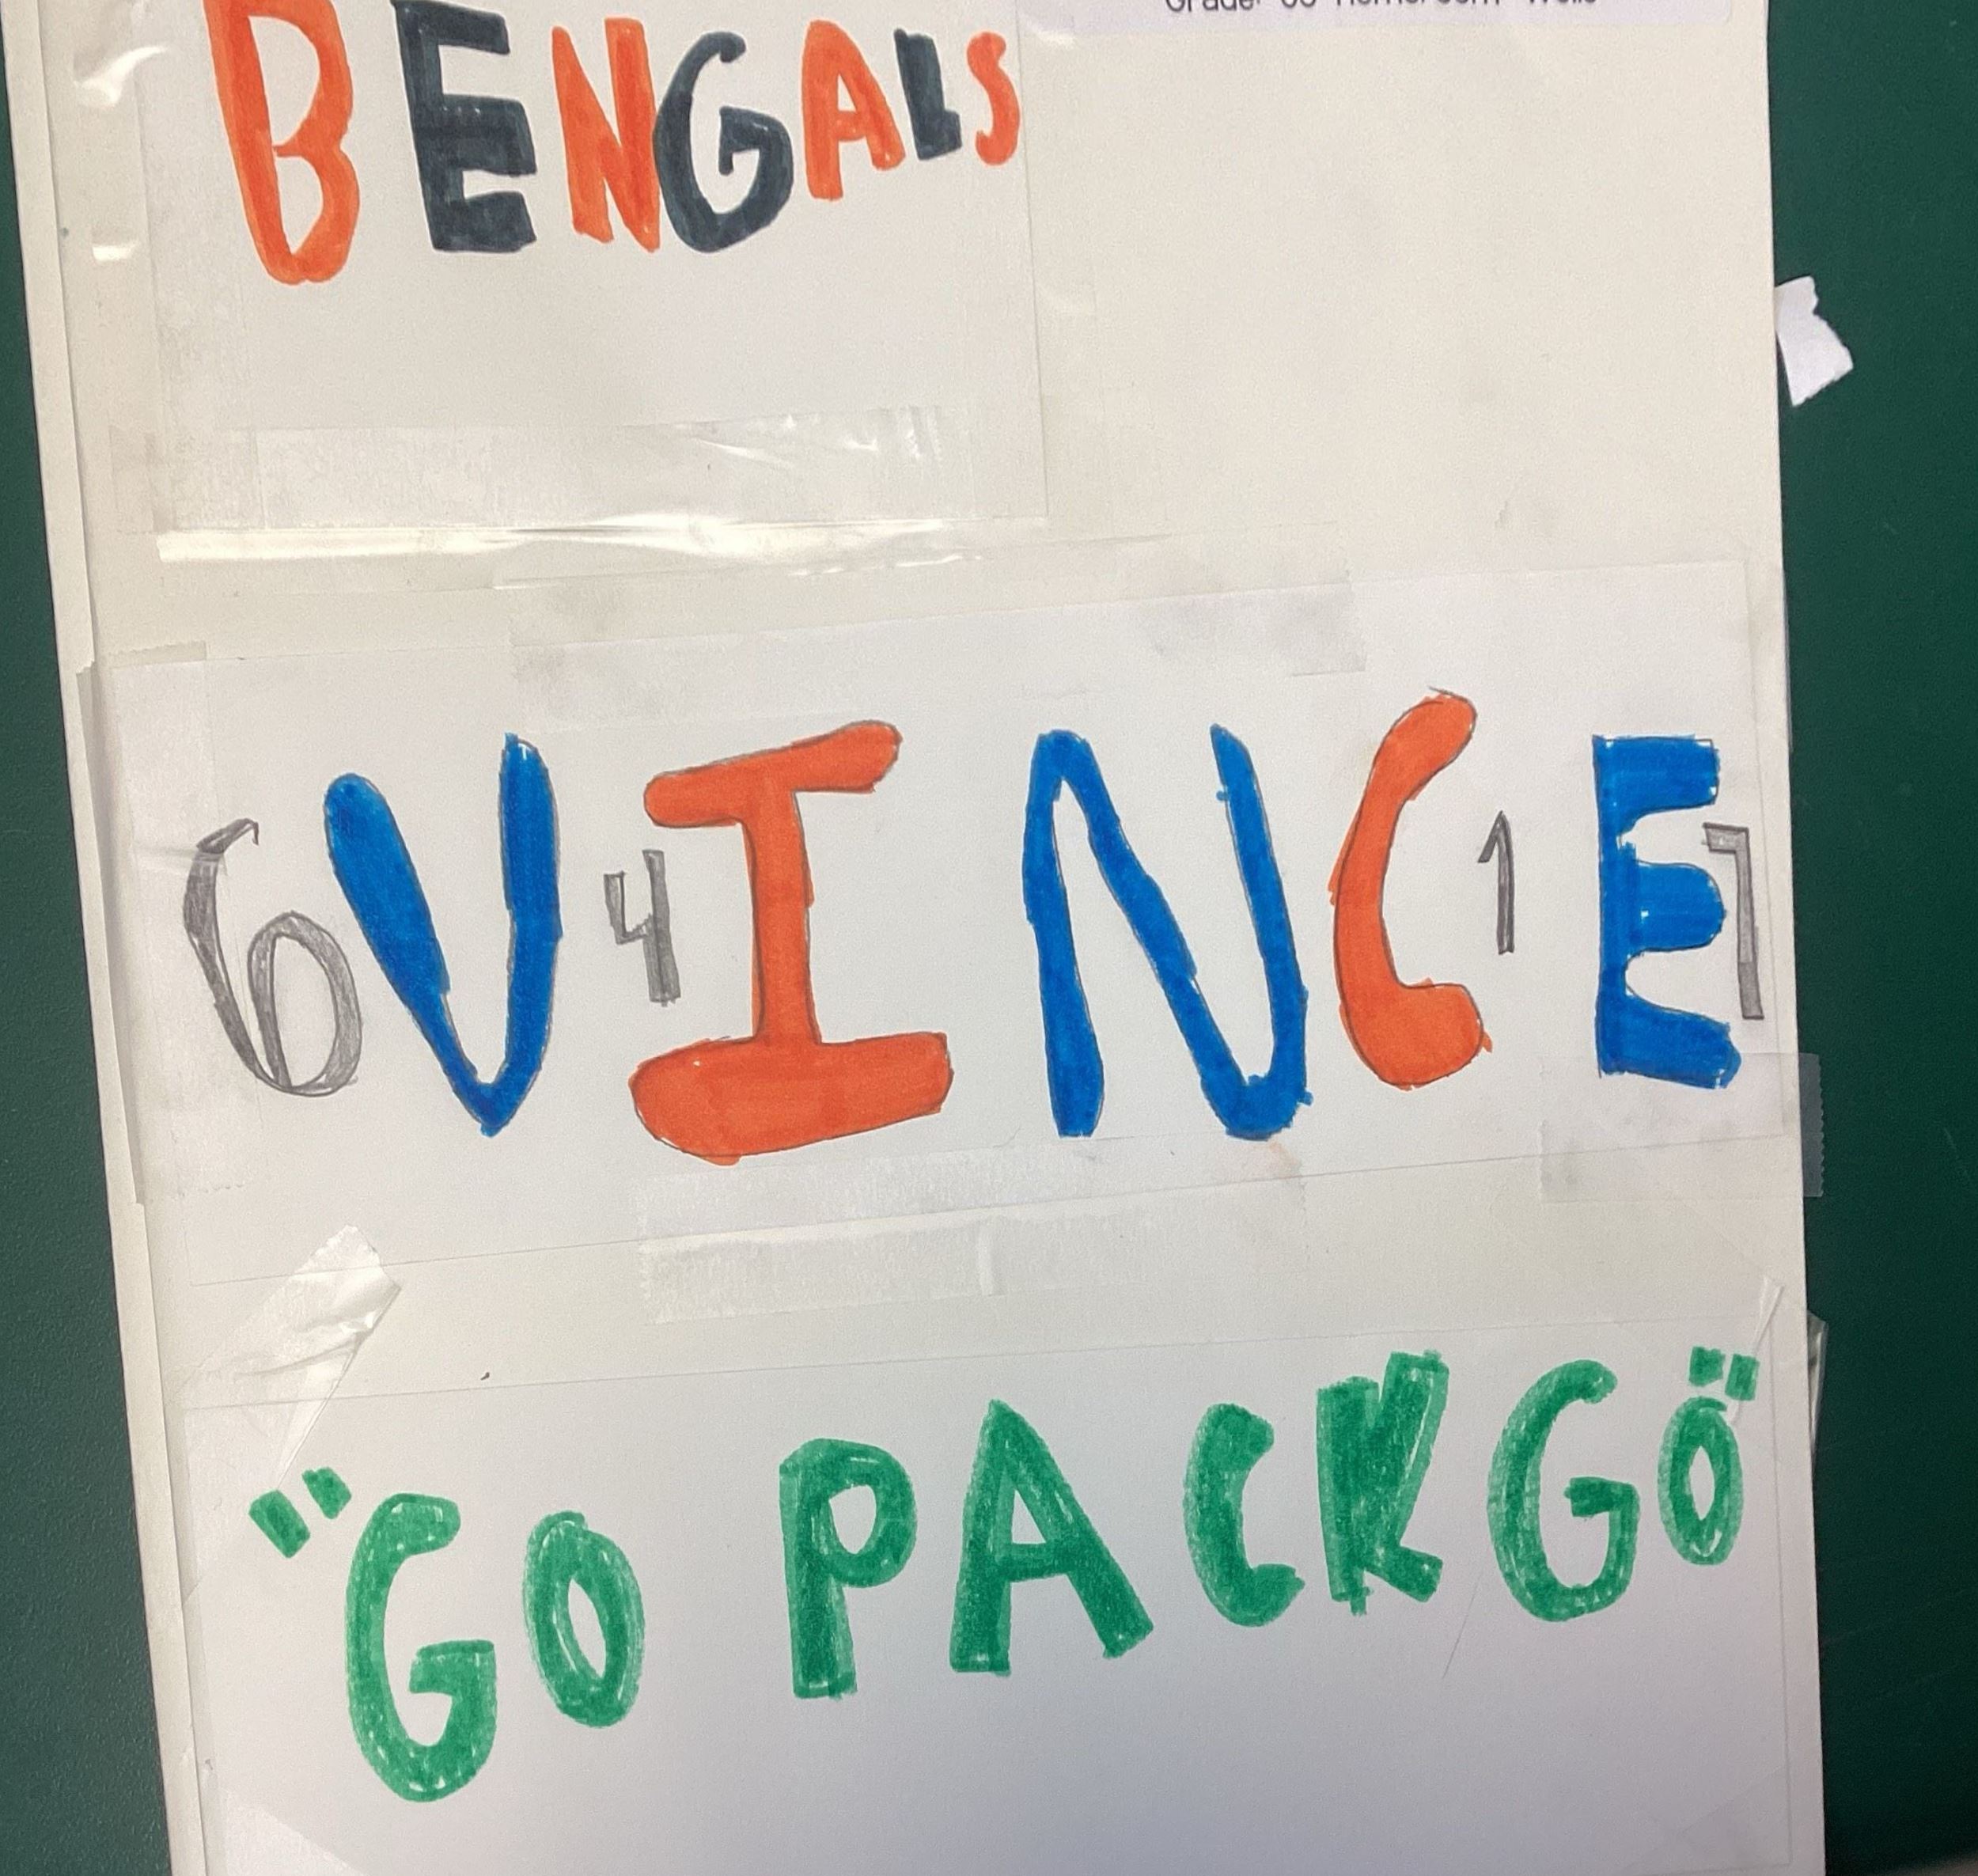 Grade: 06 Homeroom: Wells
BENGALS
6 V 4 I N C 1 E 7
"GO PACK GO"